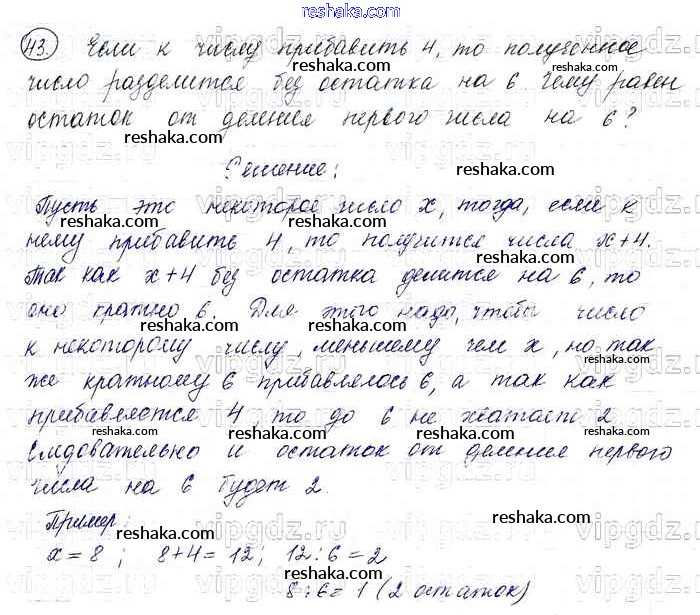 reshaka.com
43. Если к числу прибавить 4, то полученное
reshaka.com
число разделится без остатка на 6. Чему равен
reshaka.com
остаток от деления первого числа на 6?
reshaka.com
reshaka.com
Решение:
Пусть это некоторое число x, тогда, если к
reshaka.com reshaka.com
нему прибавить 4, то получится числа x+4.
reshaka.com
Так как x+4 без остатка делится на 6, то
reshaka.com
оно кратно 6. Для этого надо, чтобы число
reshaka.com reshaka.com
к некоторому числу, меньшему чем x, но так
reshaka.com
же кратному 6 прибавлялось 6, а так как
reshaka.com reshaka.com
прибавляется 4, то до 6 не хватает 2
reshaka.com reshaka.com reshaka.com
Следовательно и остаток от деления первого
reshaka.com
числа на 6 будет 2.
reshaka.com
Пример:
reshaka.com reshaka.com
x=8; 8+4=12; 12:6=2
reshaka.com
8:6=1 (2 остаток)
reshaka.com